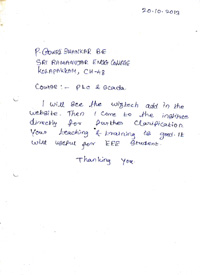 20-10-2013
P. Gowri Shankar BE
Sri Ramanujar Engg College
Kolapakkam, CH-48
Course :- PLC & Scada.
I will see the wiztech add in the
website. Then I come to the institute
directly for further clarification
Your teaching & training is good. It
will useful for EEE Student.
Thanking You.